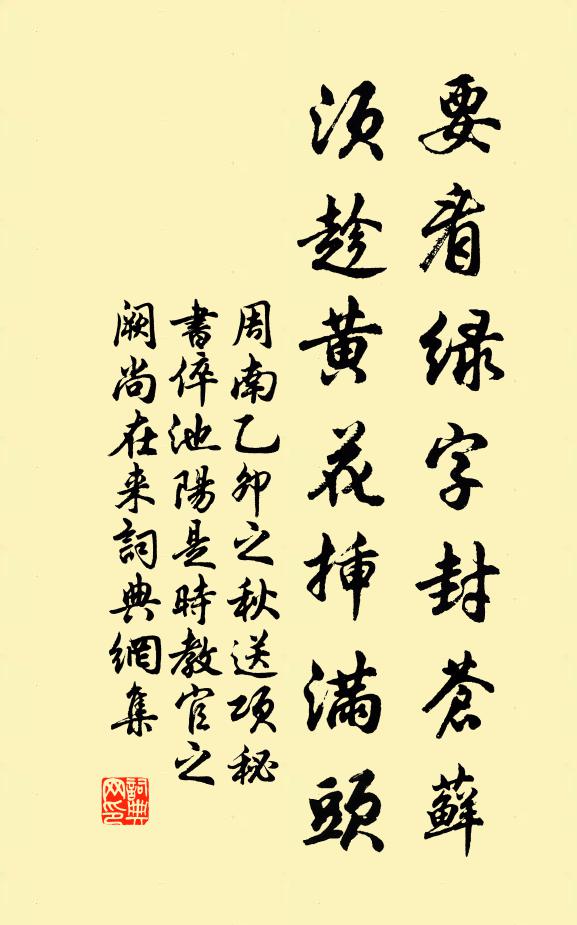 要看绿字封苍藓
须趁黄花插满头
周南乙卯之秋送项秘
書倅池陽是時教官之
闕尚在来詞典網集
詞典网印